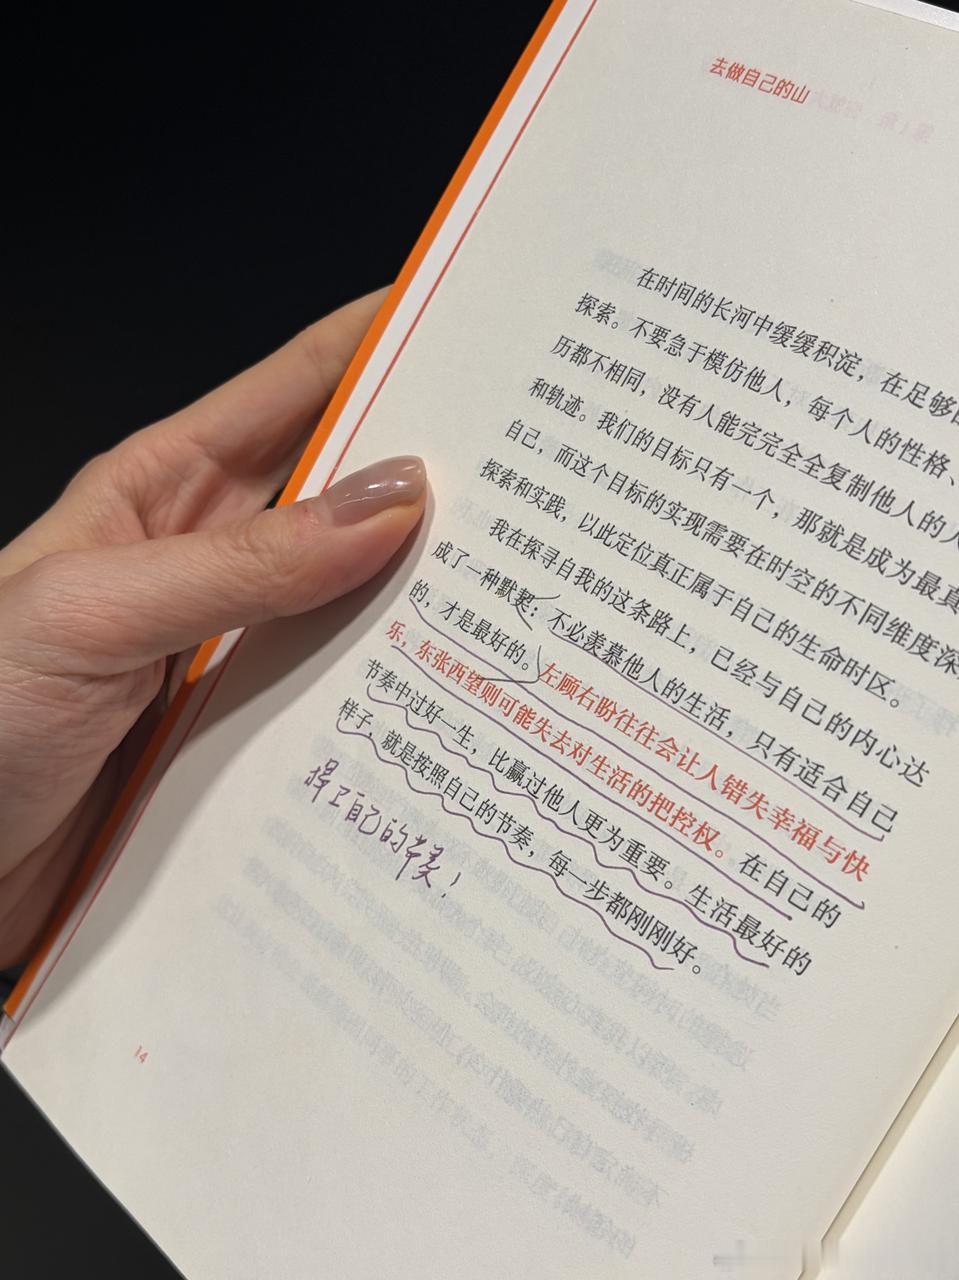 去做自己的山
在时间的长河中缓缓积淀，在足够的
探索。不要急于模仿他人，每个人的性格、
历都不相同，没有人能完完全全复制他人的人
和轨迹。我们的目标只有一个，那就是成为最真
自己，而这个目标的实现需要在时空的不同维度深
探索和实践，以此定位真正属于自己的生命时区。
我在探寻自我的这条路上，已经与自己的内心达
成了一种默契：不必羡慕他人的生活，只有适合自己
的，才是最好的。左顾右盼往往会让人错失幸福与快
乐，东张西望则可能失去对生活的把控权。在自己的
节奏中过好一生，比赢过他人更为重要。生活最好的
样子，就是按照自己的节奏，每一步都刚刚好。
自己的节奏！
14